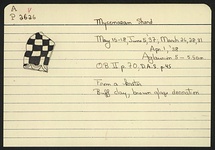 A V
P 2626
Mycenaean Sherd
May 15-18, June 5, '37; March 25, 28, 31
Apr. 1, '38
OB II p. 70. D.A.S. p. 45
From a krater
Buff clay, brown glaze decoration